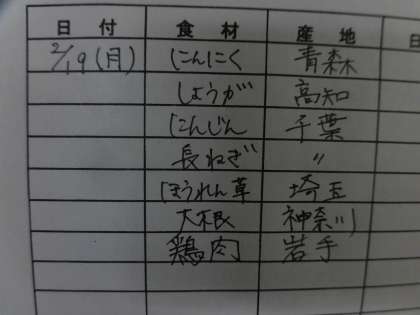 日付 食材 産地 日
2/19(月) にんにく 青森
しょうが 高知
にんじん 千葉
長ねぎ 〃
ほうれん草 埼玉
大根 神奈川
鶏肉 岩手